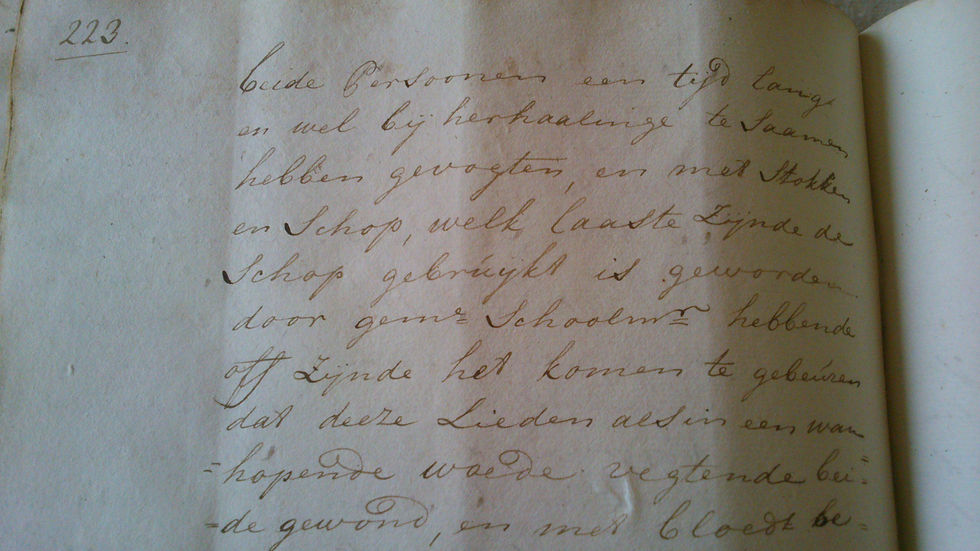 223.
beide Persoonen een tijd lang
en wel bij herhaalinge te Saamen
hebben gevogten, en met Stokken
en Schop, welk laaste Zijnde de
Schop gebrúijkt is geworden
door geme= Schoolmr= hebbende
off Zijnde het komen te gebeúren
dat deeze Lieden als in een wan=
=hopende woede vegtende bei=
=de gewond, en met bloedt be=